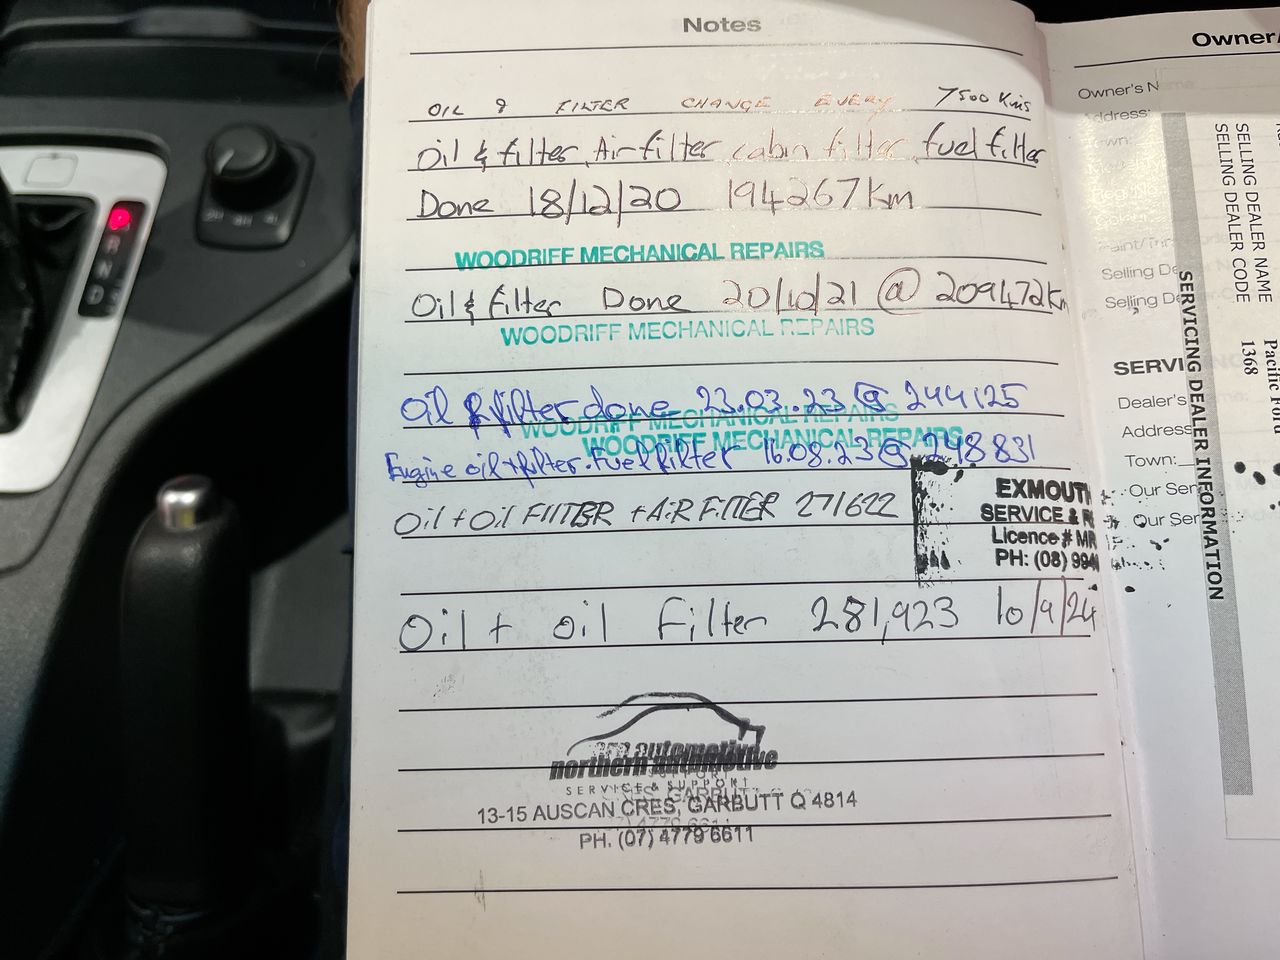 Notes
OIL & FILTER CHANGE EVERY 7500 Kms
Oil & filter, Air filter, cabin filter, fuel filter
Done 18/12/20 194267 Km
WOODRIFF MECHANICAL REPAIRS
Oil & filter Done 20/10/21 @ 209472 Km
WOODRIFF MECHANICAL REPAIRS
Oil & filter done 23.03.23 @ 244125
WOODRIFF MECHANICAL REPAIRS
WOODRIFF MECHANICAL REPAIRS
Engine oil + filter. Fuel filter 16.08.23 @ 248831
Oil + Oil FILTER + AIR FILTER 271622
EXMOUT
SERVICE & R
Licence # MR
PH: (08) 994
Oil + oil Filter 281,923 10/9/24
northern automotive
SERVICE & SUPPORT
13-15 AUSCAN CRES, GARBUTT Q 4814
PH. (07) 4779 6611
Owner/
Owner's Name
Address:
Selling De
Selling De
SERVI
Dealer's
Address
Town:
Our Ser
Our Ser
SELLING DEALER NAME
SELLING DEALER CODE
Pacific Ford
1368
SERVICING DEALER INFORMATION
R
N
D